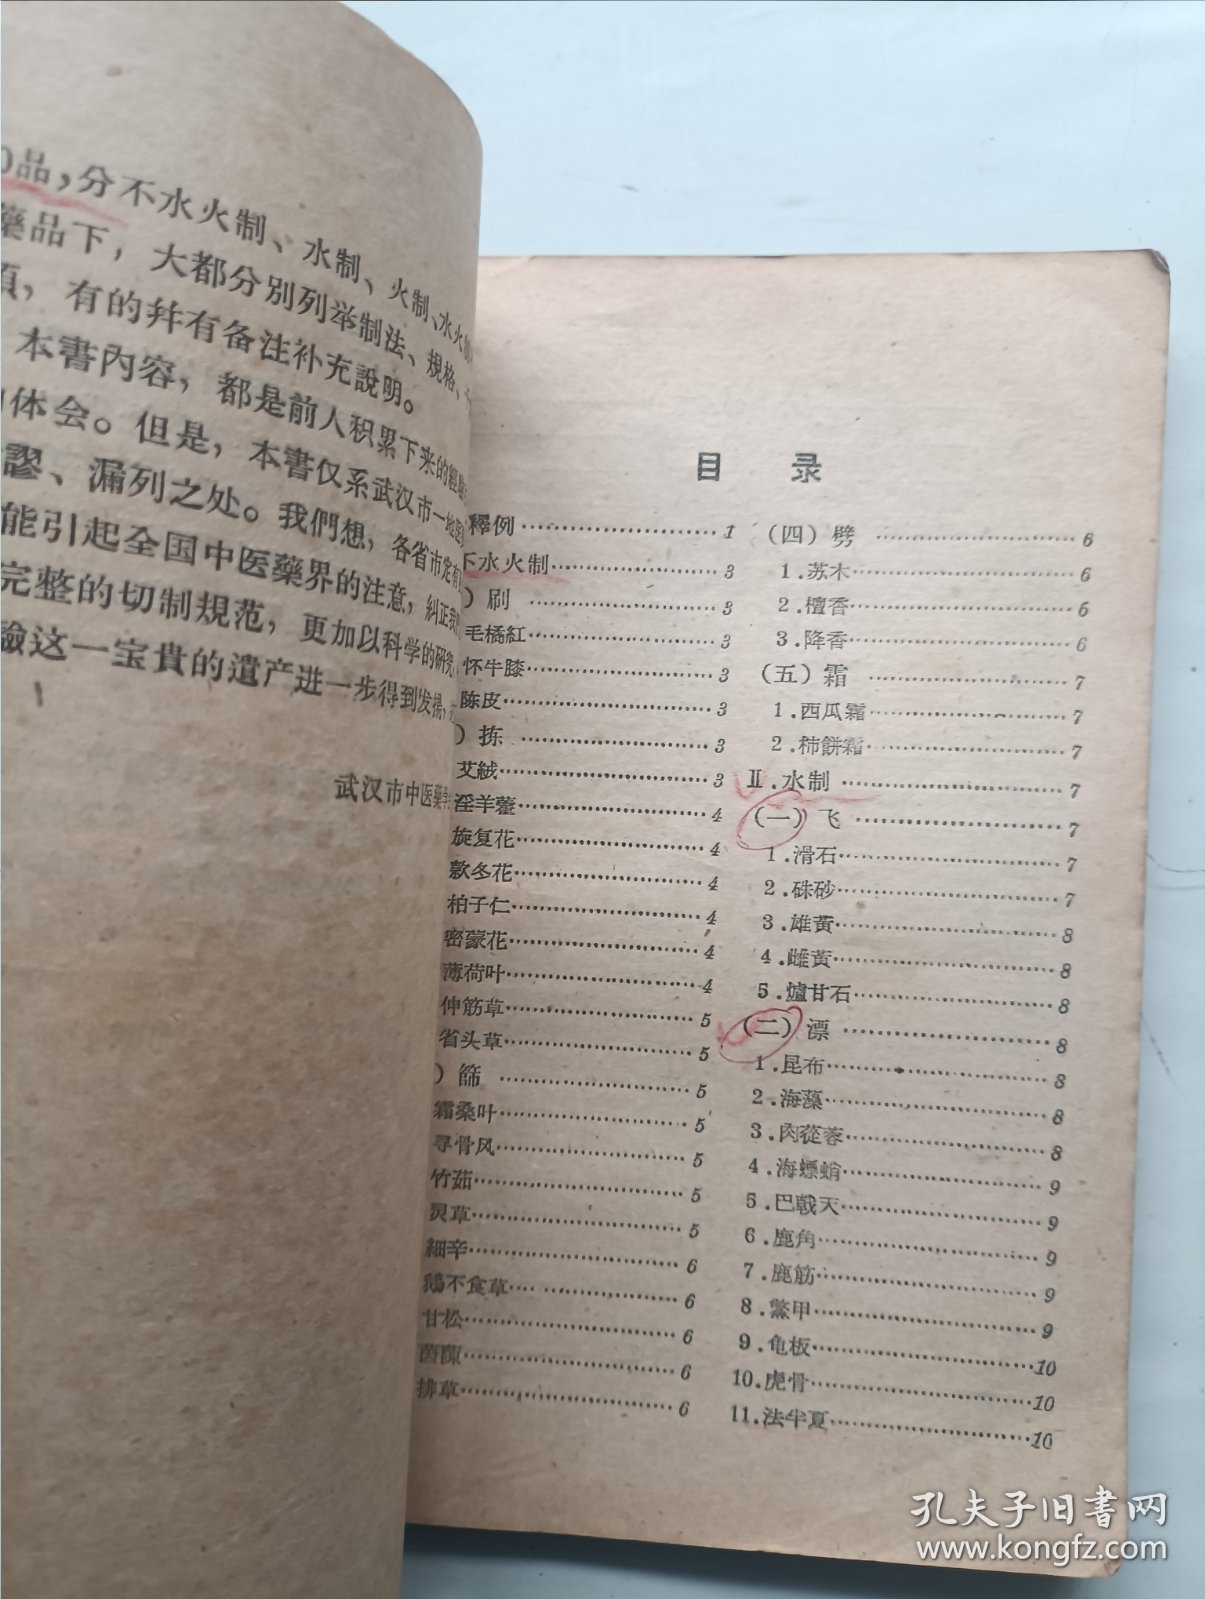 品，分不水火制、水制、火制、水火制
藥品下，大都分別列举制法、規格、
，有的幷有备注补充說明。
本書內容，都是前人积累下来的經驗
体会。但是，本書仅系武汉市一地
謬、漏列之处。我們想，各省市定有
能引起全国中医藥界的注意，糾正我
完整的切制規范，更加以科学的研究
驗这一宝貴的遺产进一步得到发揚，
武汉市中医藥学
目 录
釋例 1
不水火制 3
）刷 3
毛橘紅 3
怀牛膝 3
陈皮 3
）拣 3
艾絨 3
淫羊藿 4
旋复花 4
款冬花 4
柏子仁 4
密蒙花 4
薄荷叶 4
伸筋草 5
省头草 5
）篩 5
霜桑叶 5
寻骨风 5
竹茹 5
灵草 5
細辛 6
鵝不食草 6
甘松 6
茵陳 6
排草 6
（四）劈 6
1.苏木 6
2.檀香 6
3.降香 6
（五）霜 7
1.西瓜霜 7
2.柿餅霜 7
Ⅱ.水制 7
（一）飞 7
1.滑石 7
2.硃砂 7
3.雄黃 8
4.雌黃 8
5.爐甘石 8
（二）漂 8
1.昆布 8
2.海藻 8
3.肉蓯蓉 8
4.海螵蛸 9
5.巴戟天 9
6.鹿角 9
7.鹿筋 9
8.鱉甲 9
9.龟板 10
10.虎骨 10
11.法半夏 10
孔夫子旧書网
www.kongfz.com